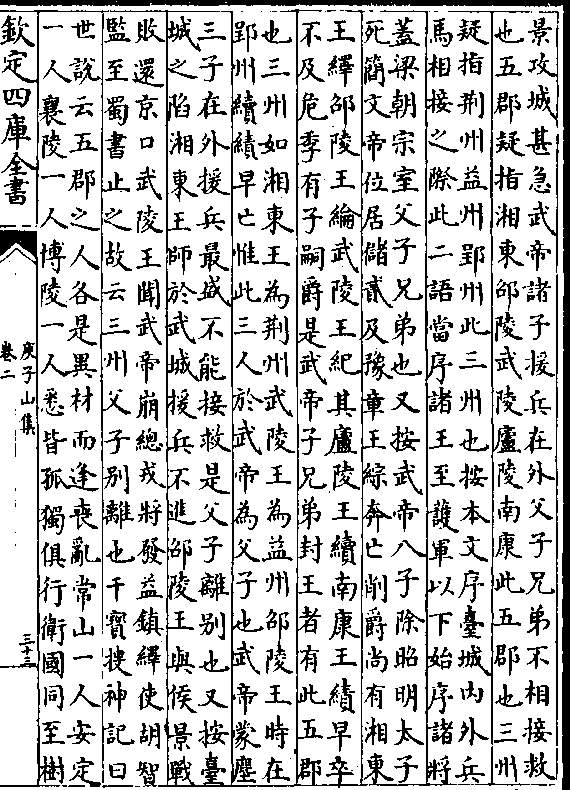 景攻城甚急武帝諸子援兵在外父子兄弟不相接救
也五郡疑指湘東邵陵武陵廬陵南康此五郡也三州
疑指荆州益州郢州此三州也按本文序臺城内外兵
馬相接之際此二語當序諸王至護軍以下始序諸將
蓋梁朝宗室父子兄弟也又按武帝八子除昭明太子
死簡文帝位居儲貳及豫章王綜奔亡削爵尚有湘東
王繹邵陵王綸武陵王紀其廬陵王續南康王績早卒
不及危季有子嗣爵是武帝子兄弟封王者有此五郡
也三州如湘東王為荆州武陵王為益州邵陵王時在
郢州續績早亡惟此三人於武帝為父子也武帝蒙塵
三子在外援兵最盛不能接救是父子離别也又按臺
城之陷湘東王師於武城援兵不進邵陵王與侯景戰
敗還京口武陵王聞武帝崩總戎將發益鎮繹使胡智
監至蜀書止之故云三州父子别離也干寳搜神記曰
世說云五郡之人各是異材而逢喪亂常山一人安定
一人襄陵一人博陵一人悉皆孤獨俱行衛國同至樹
欽定四庫全書
庾子山集
卷二
三十三